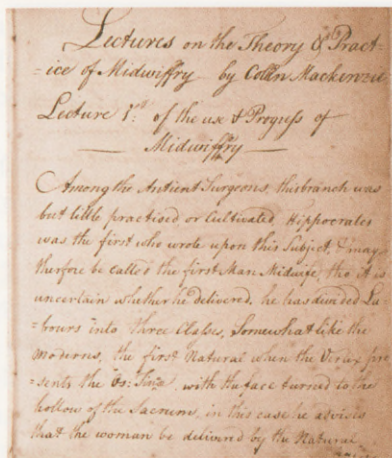 Lectures on the Theory & Pract-
=ice of Midwiffry by Colin Mackenzie
Lecture 1st: of the use & Progress of
Midwiffry
Among the Antient Surgeons, this branch was
but little practiced or Cultivated, Hippocrates
was the first who wrote upon this Subject, & may
therfore be called the first Man Midwife, tho' it is
uncertain whether he delivered, he has divided La-
=bours into three Classes, Somewhat like the
Moderns, the first Natural when the Vertex pre
=sents the Os: with the face turned to the
hollow of the Sacrum, in this case he advises
that the woman be delivered by the Natural